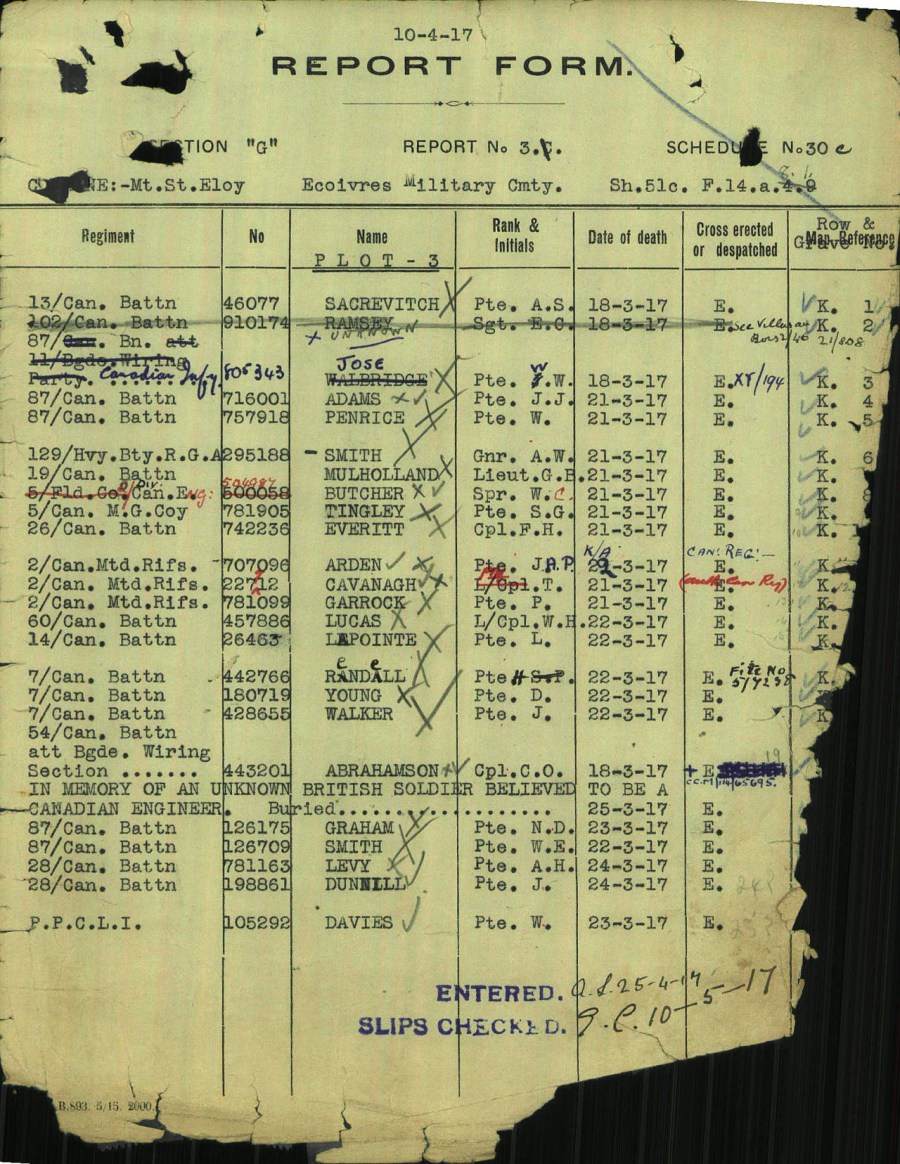 10-4-17
REPORT FORM.
SECTION "G" REPORT No 3. SCHEDULE No 30 c
NE:-Mt.St.Eloy Ecoivres Military Cmty. Sh.51c. F.14.a.4.9
Regiment No Name Rank & Initials Date of death Cross erected or despatched Row & Grave No. Map Reference
PLOT-3
13/Can. Battn 46077 SACREVITCH Pte. A.S. 18-3-17 E. K. 1
102/Can. Battn 910174 RAMSEY Sgt. E.C. 18-3-17 E. See K. 2
87/Can. Bn. att + UNKNOWN 21/808
11/Bgde.Wiring JOSE
Party. Canadian Infy. 805343 WALBRIDGE Pte. W. 18-3-17 E. XY/194 K. 3
87/Can. Battn 716001 ADAMS Pte. J.J. 21-3-17 E. K. 4
87/Can. Battn 757918 PENRICE Pte. W. 21-3-17 E. K. 5
129/Hvy.Bty.R.G.A 295188 - SMITH Gnr. A.W. 21-3-17 E. K. 6
19/Can. Battn MULHOLLAND Lieut.G.B. 21-3-17 E. K.
504087
5/Fld.Co. Div. Can.Eng: 500058 BUTCHER Spr. W.C. 21-3-17 E. K. 8
5/Can. M.G.Coy 781905 TINGLEY Pte. S.G. 21-3-17 E. K.
26/Can. Battn 742236 EVERITT Cpl.F.H. 21-3-17 E. K.
K/A CAN: REG:—
2/Can.Mtd.Rifs. 707096 ARDEN Pte. J.A.P. 21-3-17 E. K.
2/Can. Mtd.Rifs. 22712 CAVANAGH Pte L/Cpl.T. 21-3-17 E. K.
2/Can. Mtd.Rifs. 781099 GARROCK Pte. P. 21-3-17 E. K.
60/Can. Battn 457886 LUCAS L/Cpl.W.H. 22-3-17 E. K.
14/Can. Battn 26463 LAPOINTE Pte. L. 22-3-17 E. K.
e e File No
7/Can. Battn 442766 RANDALL Pte H S.P. 22-3-17 E. K.
7/Can. Battn 180719 YOUNG Pte. D. 22-3-17 E. K.
7/Can. Battn 428655 WALKER Pte. J. 22-3-17 E. K.
54/Can. Battn
att Bgde. Wiring
Section ....... 443201 ABRAHAMSON Cpl.C.O. 18-3-17 + E
IN MEMORY OF AN UNKNOWN BRITISH SOLDIER BELIEVED TO BE A
CANADIAN ENGINEER. Buried................... 25-3-17 E.
87/Can. Battn 126175 GRAHAM Pte. N.D. 23-3-17 E.
87/Can. Battn 126709 SMITH Pte. W.E. 22-3-17 E.
28/Can. Battn 781163 LEVY Pte. A.H. 24-3-17 E.
28/Can. Battn 198861 DUNNILL Pte. J. 24-3-17 E.
P.P.C.L.I. 105292 DAVIES Pte. W. 23-3-17 E.
ENTERED. 25-4-17
SLIPS CHECKED. 10-5-17
B.893. 5/15. 2000.